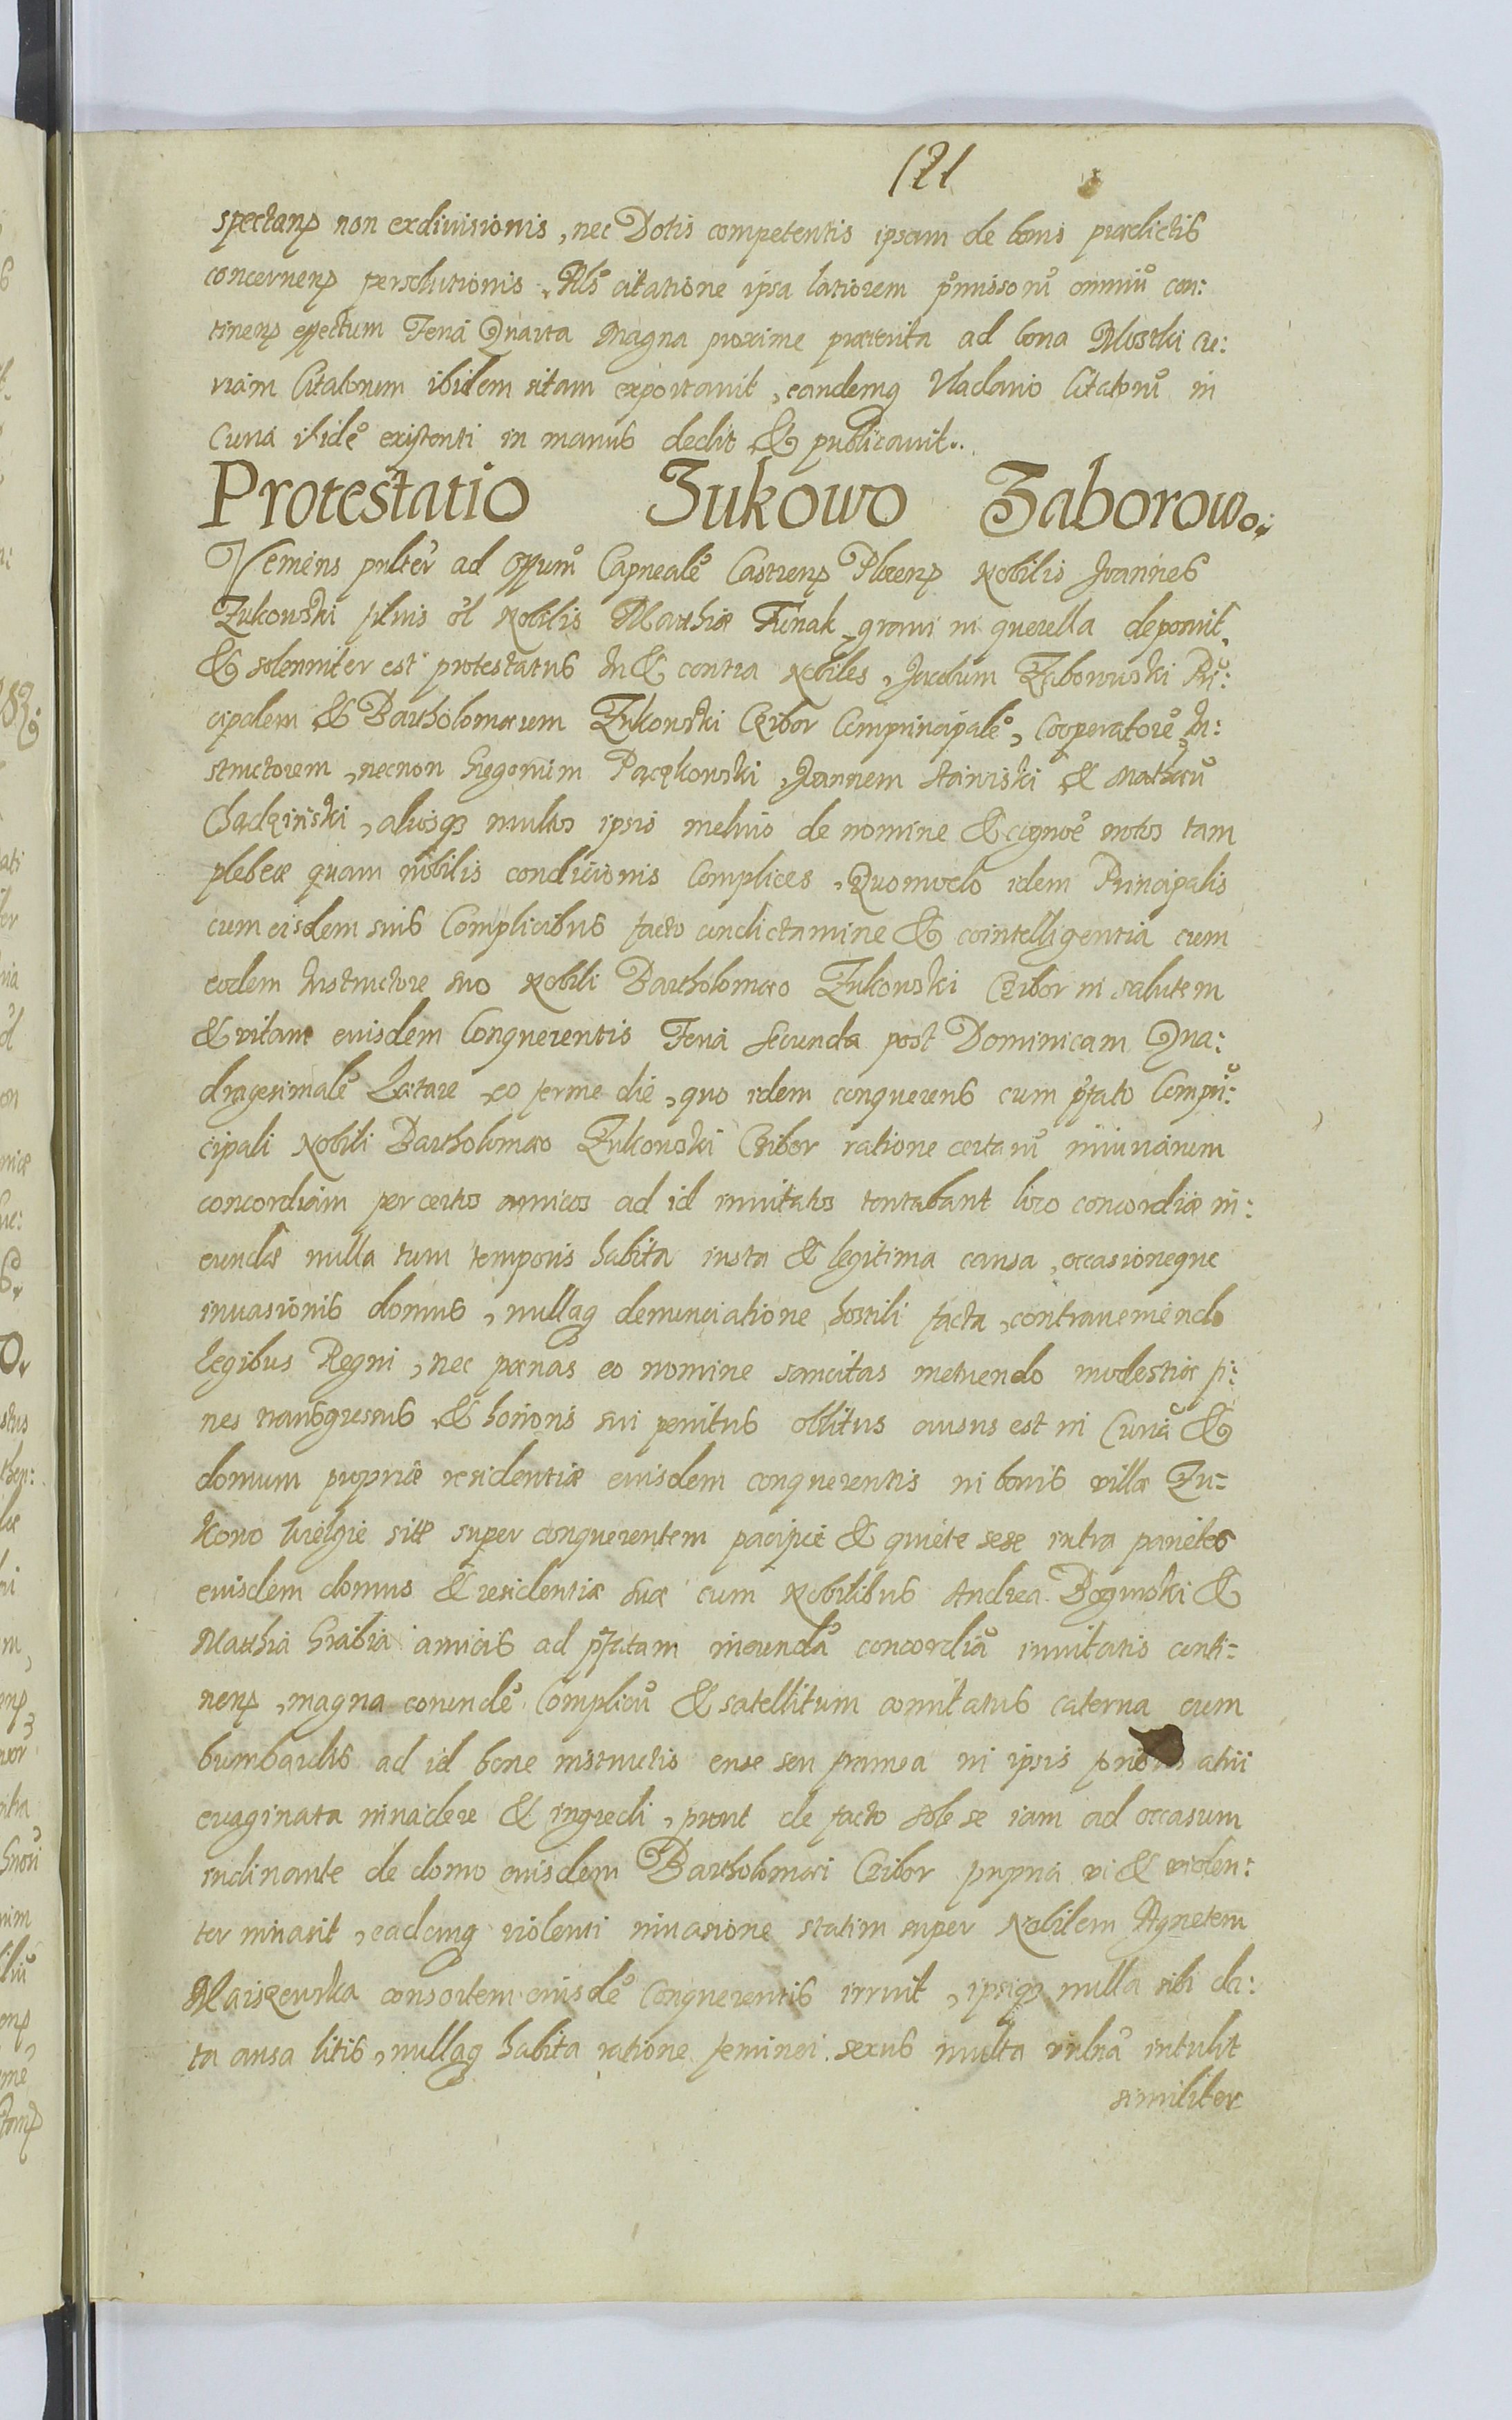 121
spectan non exdiuisionis, nec Dotis competentis ipsam de bonis prædictis
concernen persolutionis. citatione ipsa latiorem omniũ con:
tinen effectum Feria Quarta Magna proxime præterita ad bona Mostki cu:
riam Citatorum ibidem sitam exportauit, eandemq Citatorũ in
Curia ibidẽ existenti in manus dedit & publicauit..
Protestatio Zukowo Zaborowo.
Veniens ad Offium Capnealẽ Castren Plocen Nobilis Joannes
Zukowski filius ol Nobilis Matthiæ graui in querella deposuit,
& solenniter est protestatus in & contra Nobiles, Jacobum Zaborowski Prĩ:
cipalem & Bartholomæum Zukowski Czibor Comprincipalẽ, Cooperatorẽ In:
structorem, necnon Gregorium Pączkowski, Joannem & Mathæũ
Chądzinski, aliosq multos ipsis melius de nomine & cognoẽ notos tam
plebeæ quam nobilis condicionis Complices, Quomodo idem Principalis
cum eisdem suis Complicibus facto condictamine & cointelligentia cum
eodem Instructore suo Nobili Bartholomæo Zukowski Czibor in salutem
& vitam eiusdem Conquerentis Feria Secunda post Dominicam Qua:
dragesimalẽ Lætare, eo ferme die, quo idem conquerens cum pfato Comprĩ:
cipali Nobili Bartholomæo Zukowski Czibor ratione certarũ iniuriarum
concordiam per certos amicos ad id inuitatos tentabant loco concordiæ in:
eundæ nulla tum temporis habita iusta & legitima causa, occasioneque
inuasionis domus, nullaq denunciatione hostili facta, contraueniendo
legibus Regni, nec pænas eo nomine sancitas metuendo modestiæ fi:
nes transgressus & honoris sui penitus oblitus ausus est in Curiã &
domum propriæ residentiæ eiusdem conquerentis in bonis villæ Zu=
kowo Wielgie sitæ super conquerentem pacifice & quiete sese intra parietes
eiusdem domus & residentiæ suæ cum Nobilibus Andrea &
Matthia Grabia amicis ad pfatam ineundã concordiã inuitatis conti=
nen, magna eorundẽ Complicũ & satellitum comitatus caterua cum
bumbardis ad id bene instructis ense seu framea in ipsis atrii
euaginata inuadere & ingredi, prout de facto sole se iam ad occasum
inclinante de domo eiusdem Bartholomæi Czibor propria vi & violen:
ter inuasit, eademq violenti inuasione statim super Nobilem Agnetem
Maiszewska consortem eiusdẽ Conquerentis irruit, ipsiq nulla sibi da:
ta ansa litis, nullaq habita ratione feminei sexus multa vulnera intulit
similiter